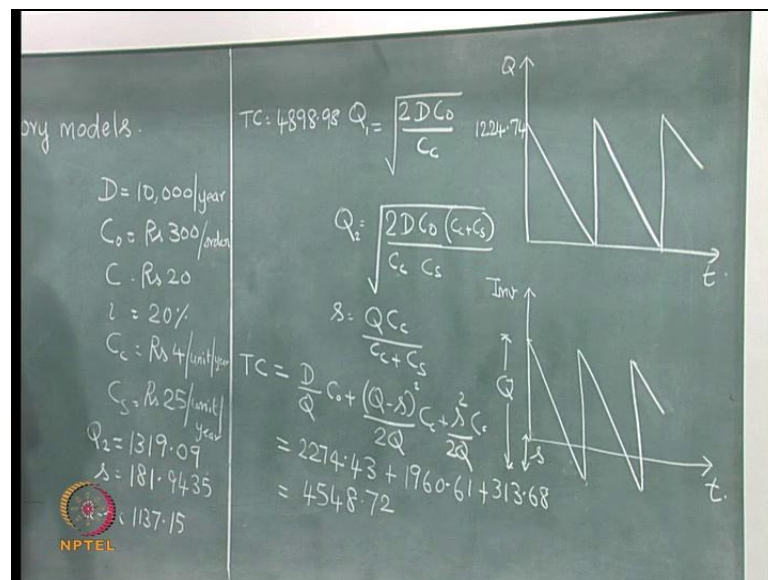 ory models.
D = 10,000/year
C₀ = Rs 300/order
C = Rs 20
i = 20%
C_c = Rs 4/unit/year
C_s = Rs 25/unit/year
Q₂ = 1319.09
s = 181.9435
1137.15
NPTEL
TC = 4898.98 Q₁ = √(2DC₀ / C_c)
Q₂ = √(2DC₀(C_c+C_s) / C_c C_s)
s = QC_c / (C_c + C_s)
TC = D/Q C₀ + (Q-s)²/2Q C_c + s²/2Q C_s
= 2274.43 + 1960.61 + 313.68
= 4548.72
Q
1224.74
t.
Inv
Q
s
t.